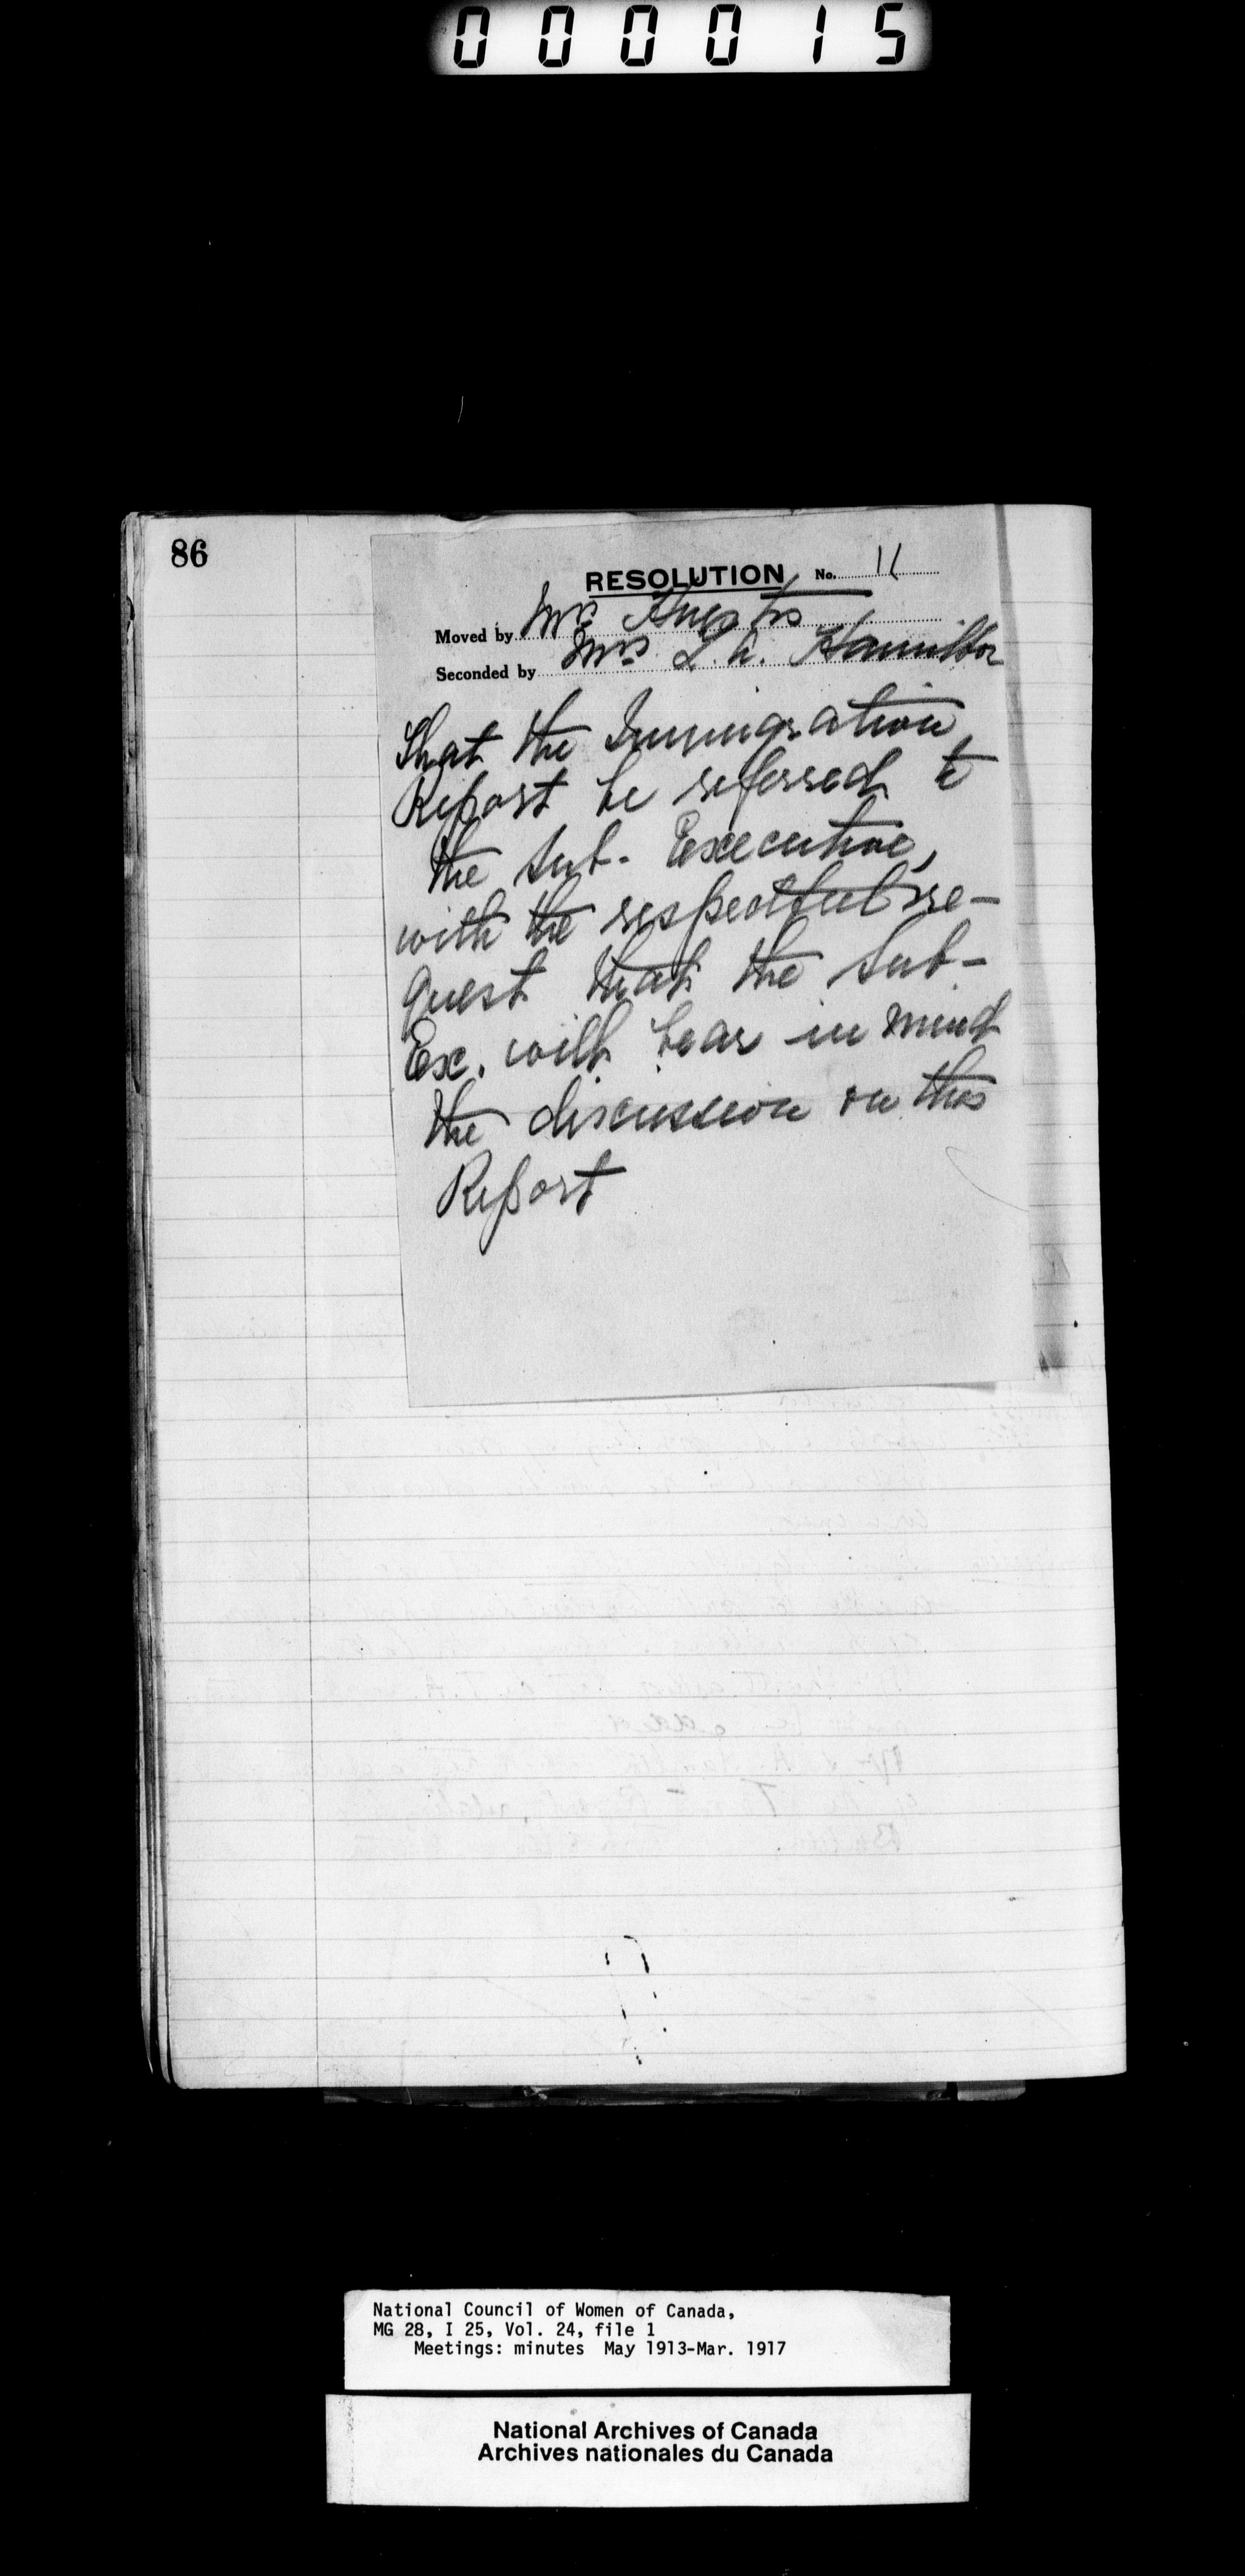 000015
86
RESOLUTION No. 11
Moved by Mrs
Seconded by Mrs L. A. Hamilton
That the Immigration
Report be referred to
the Sub-Executive,
with the respectful re-
quest that the Sub-
Ex. will bear in mind
the discussion on this
Report
National Council of Women of Canada,
MG 28, I 25, Vol. 24, file 1
Meetings: minutes May 1913-Mar. 1917
National Archives of Canada
Archives nationales du Canada